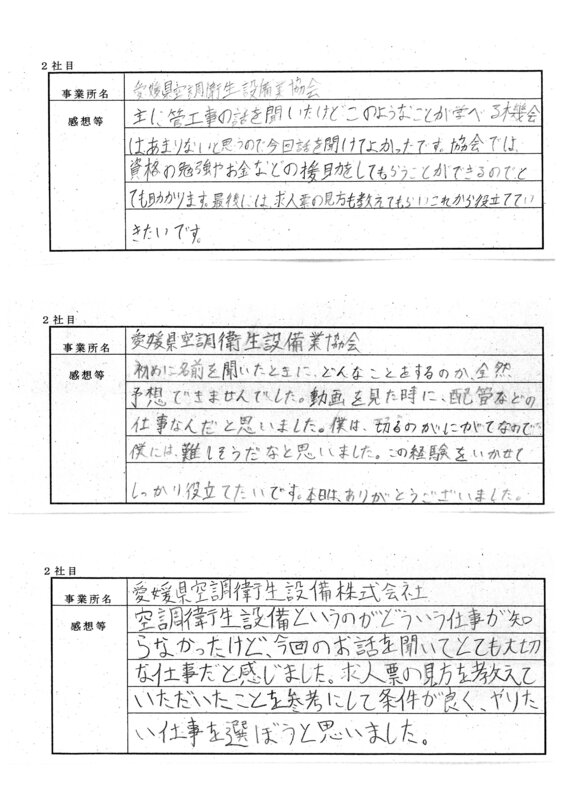 2社目
事業所名 愛媛県空調衛生設備業協会
感想等 主に管工事の話を聞いたけどこのようなことが学べる機会
はあまりないと思うので今回話を聞けてよかったです。協会では、
資格の勉強やお金などの援助をしてもらうことができるのでと
ても助かります。最後には、求人票の見方も教えてもらいこれから役立ててい
きたいです。
2社目
事業所名 愛媛県空調衛生設備業協会
感想等 初めに名前を聞いたときに、どんなことをするのか、全然
予想できませんでした。動画を見た時に、配管などの
仕事なんだと思いました。僕は、切るのがにがてなので
僕には、難しそうだなと思いました。この経験をいかせて
しっかり役立てたいです。本日は、ありがとうございました。
2社目
事業所名 愛媛県空調衛生設備株式会社
感想等 空調衛生設備というのがどういう仕事が知
らなかったけど、今回のお話を聞いてとても大切
な仕事だと感じました。求人票の見方を教えて
いただいたことを参考にして条件が良く、やりた
い仕事を選ぼうと思いました。